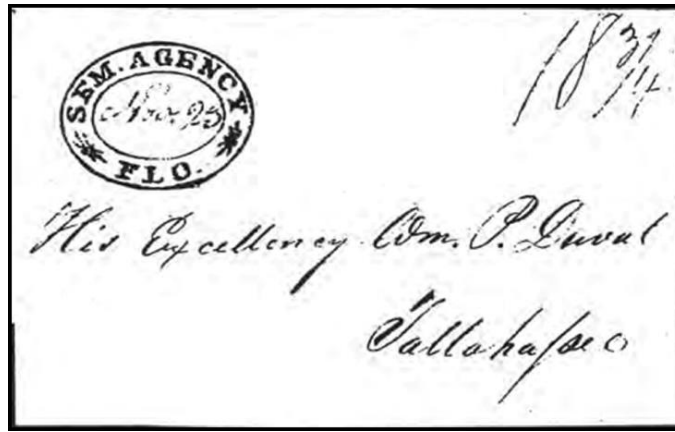 SEM. AGENCY
Nov. 25
FLO.
18 3/4
His Excellency Wm. P. Duval
Tallahassee